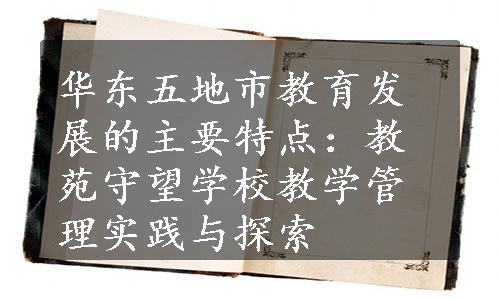 华东五地市教育发
展的主要特点：教
苑守望学校教学管
理实践与探索